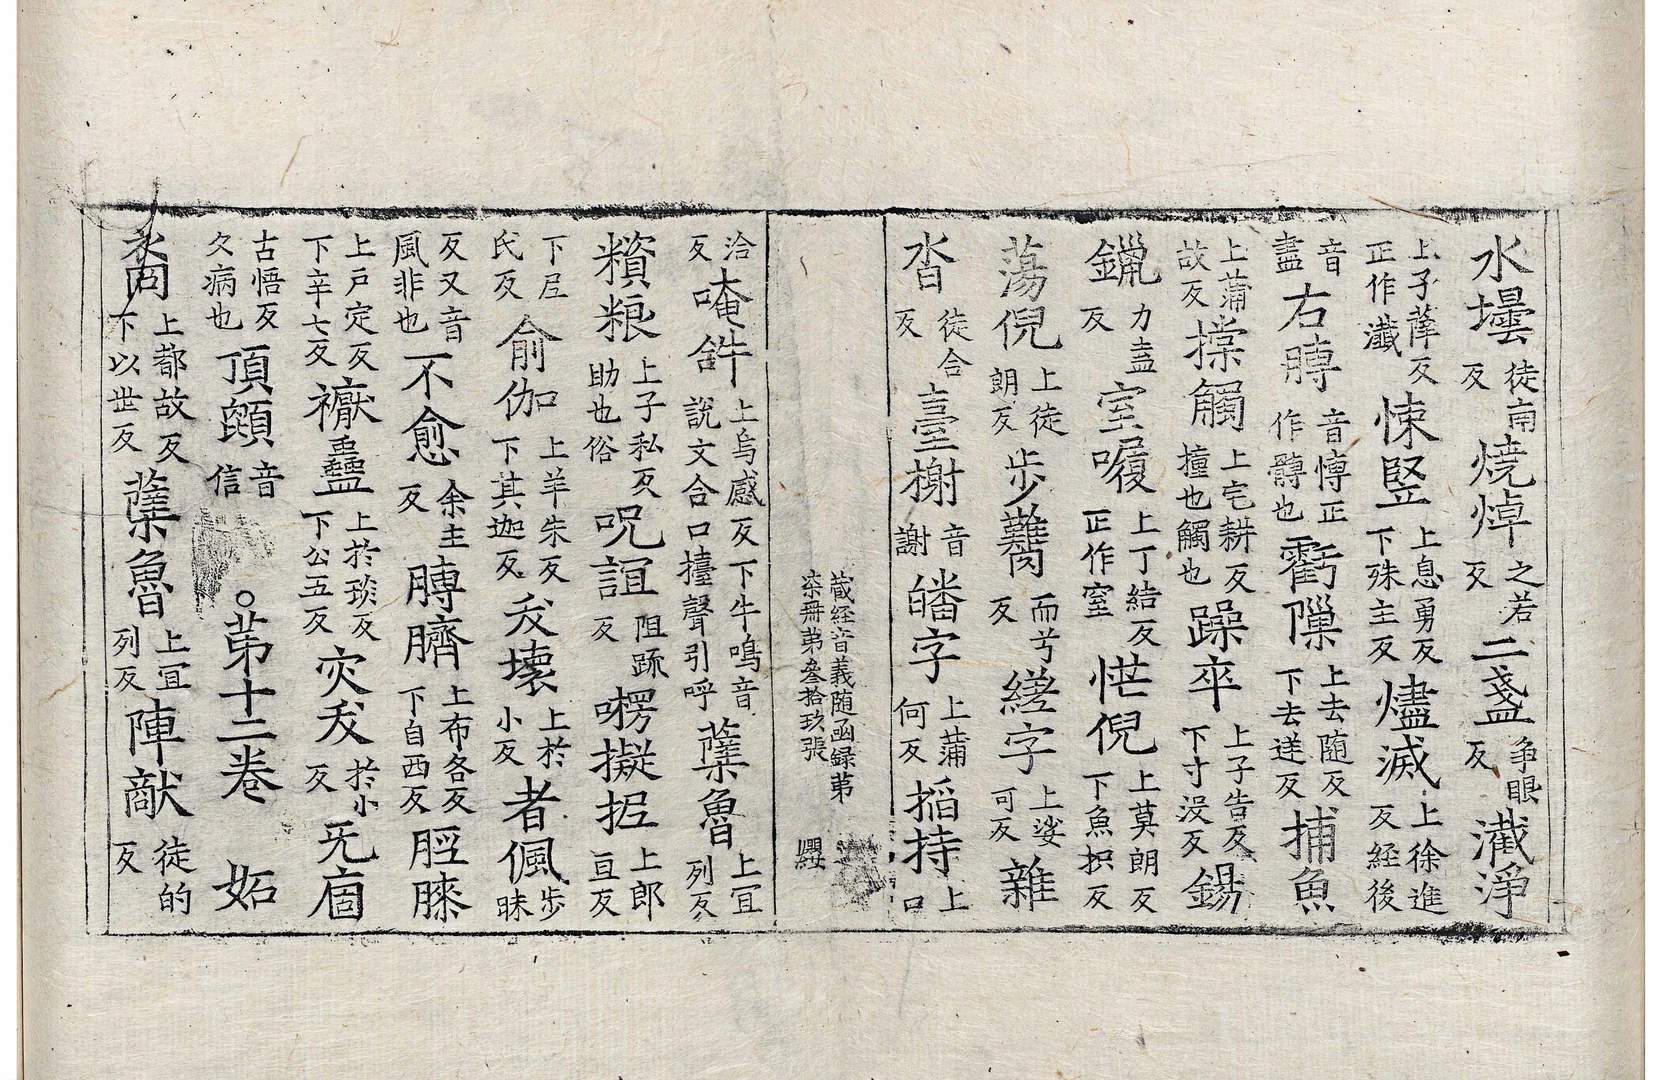 水壜徒南反燒焯之若反二盞爭眼反瀐淨
上子薩反正作瀸悚竪上息勇反下殊主反燼滅上徐進反經後
音盡右膞音愽正作髆也虧隟上去随反下去逆反捕魚
上蒲故反㨃觸上宅耕反撞也觸也躁卒上子告反下寸没反錫
鑞力盍反室㘗上丁結反正作窒恾倪上莫朗反下魚枳反
蕩倪上徒朗反步薾而兮反縒字上娑可反雜
沓徒合反臺榭音謝皤字上蒲何反搯持上口
藏経音義随函録第柒冊第叁拾玖張 嬰
洽反唵㪉上烏感反下牛鳴音說文合口擡聲引呼蘖魯上冝列反
䊠粮上子私反助也俗呪詛阻䟽反㗚擬抳上郎亘反
下𡰱氏反俞伽上羊朱反下其迦反夭壞上於小反者佩步昧
反又音風非也不愈余主反膊臍上布各反下自西反脛膝
上戶定反下辛七反禳蠱上於琰反下公五反灾夭於小反旡痼
古悟反久病也頂顖音信○第十二卷 妬
裔上都故反下以世反蘖魯上冝列反陣敵徒的反